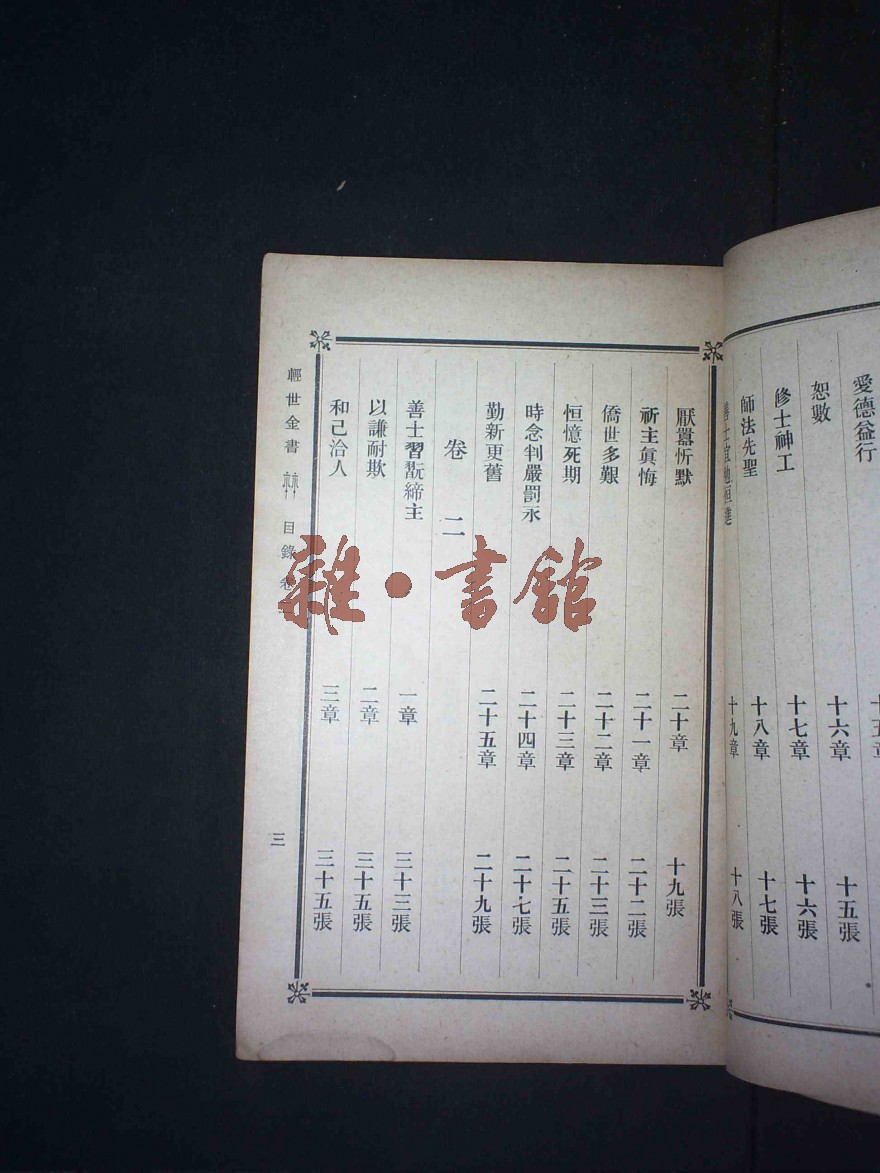 愛德益行
十五張
恕數 十六章 十六張
修士神工 十七章
師法先聖 十八章 十七張
善士宜勉恒進 十九章 十八張
厭囂忻默 二十章 十九張
祈主真悔 二十一章 二十二張
僑世多艱 二十二章 二十三張
恒憶死期 二十三章 二十五張
時念判嚴罰永 二十四章 二十七張
勤新更舊 二十五章 二十九張
卷 二
善士習翫締主 一章 三十三張
以謙耐欺 二章 三十五張
和己洽人 三章 三十五張
輕世金書 目錄 卷二 三
雜·書館